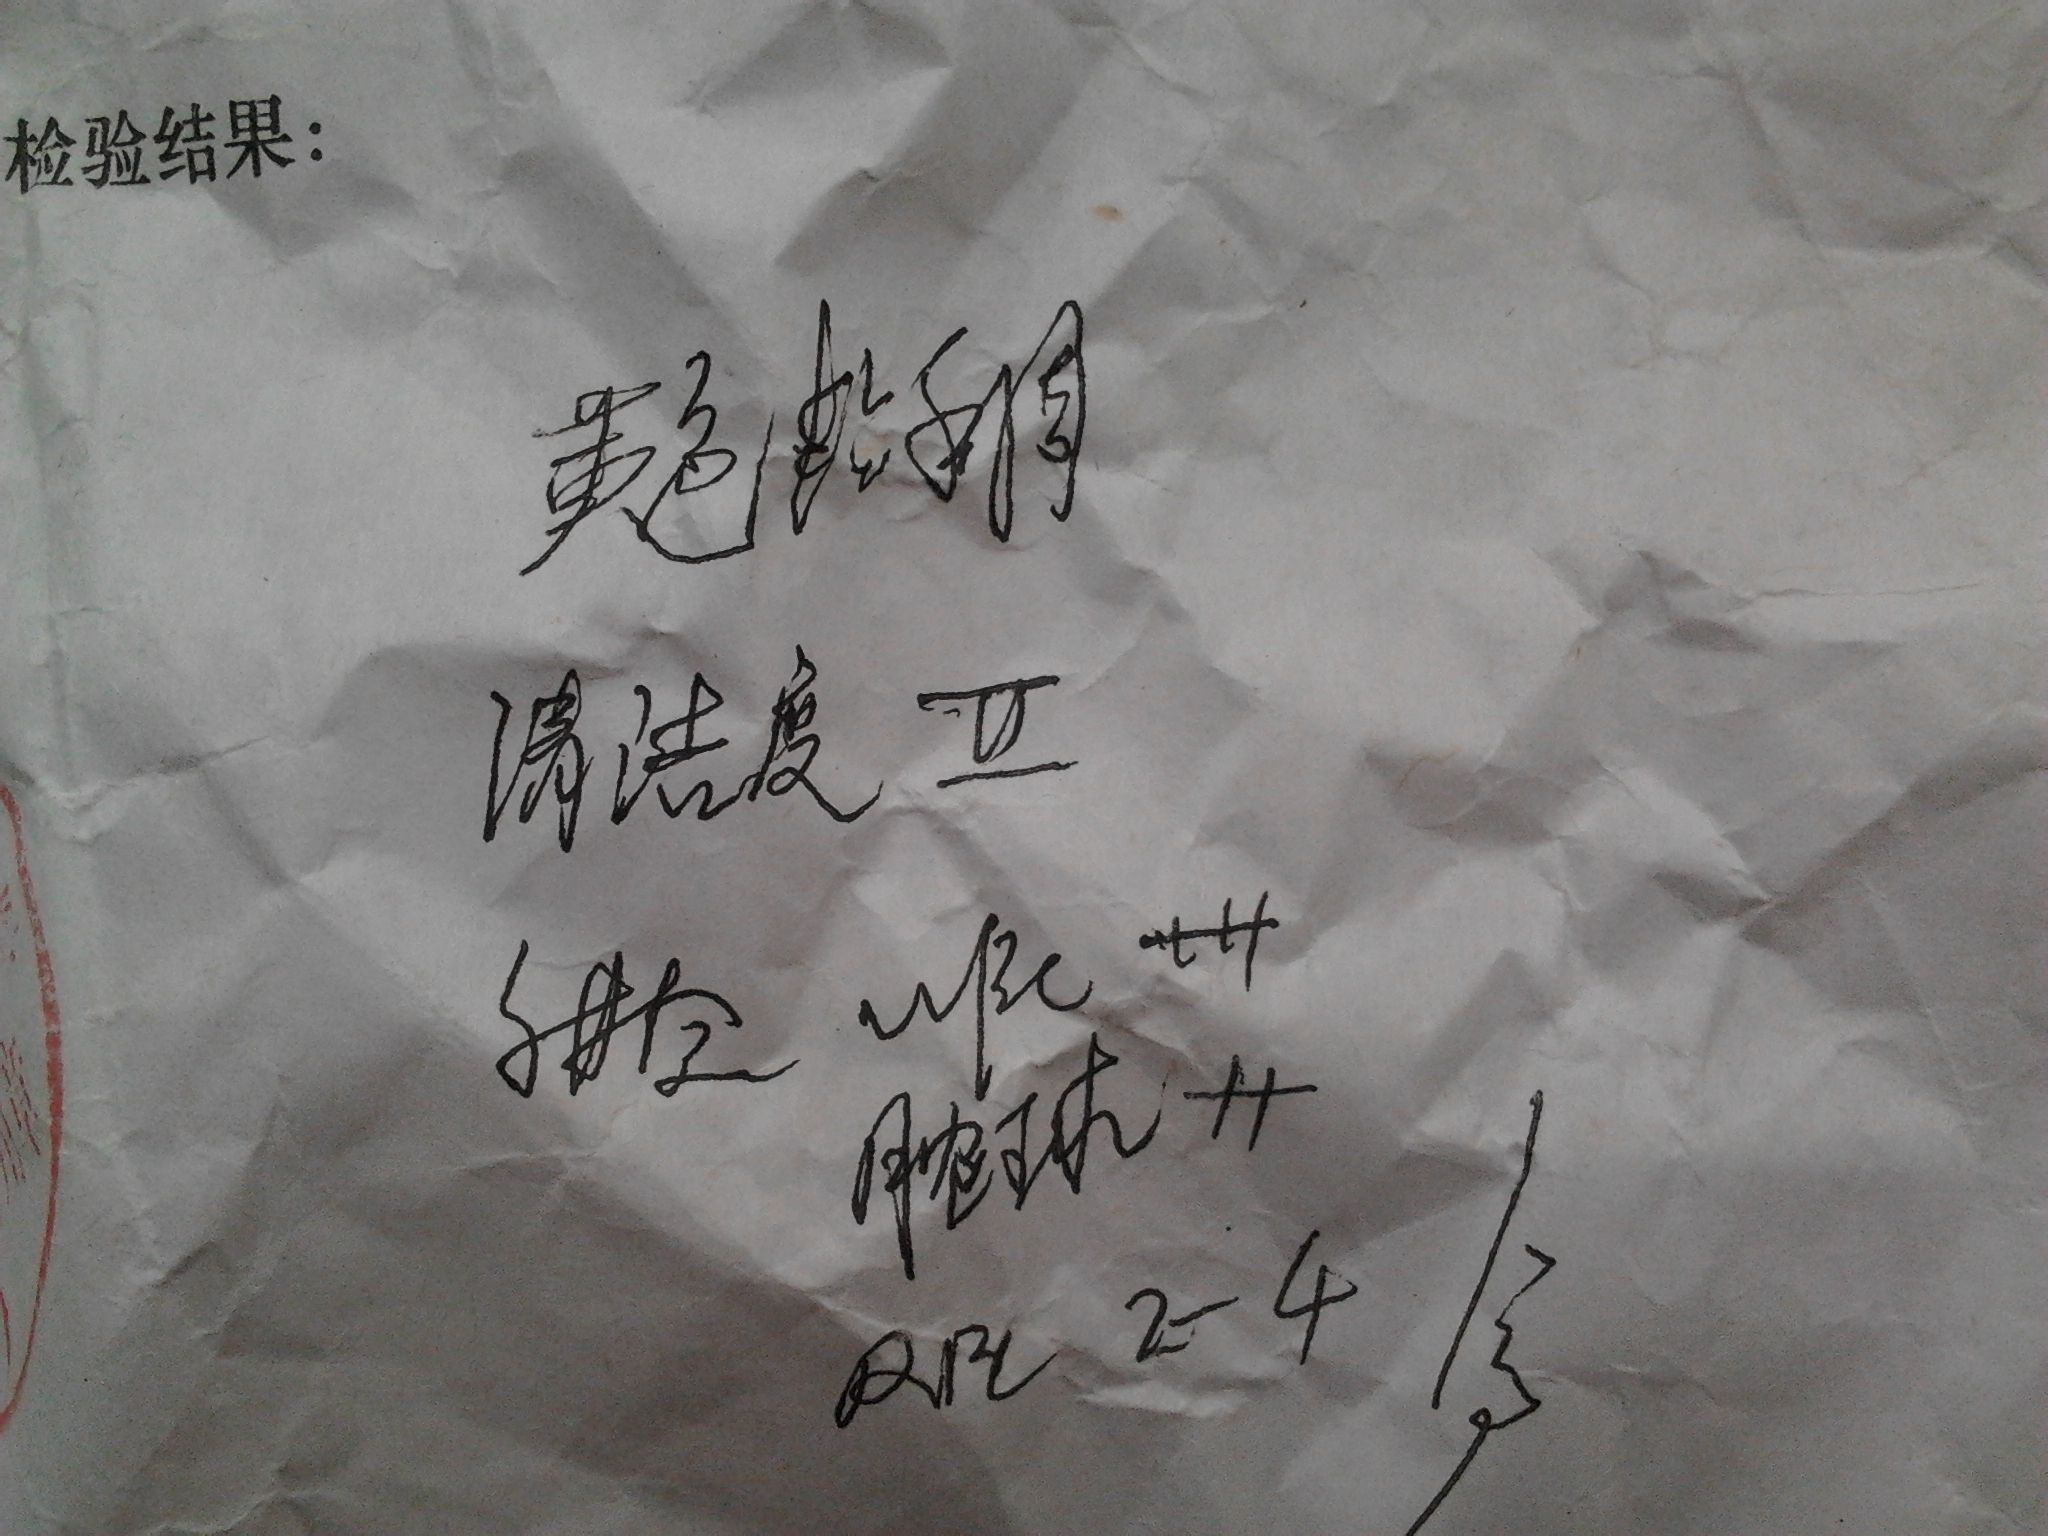 检验结果:
黄色粘稠
清洁度 II
镜检 WBC +++
脓球 ++
RBC 2-4/高